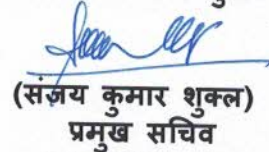 (संजय कुमार शुक्ल)
प्रमुख सचिव